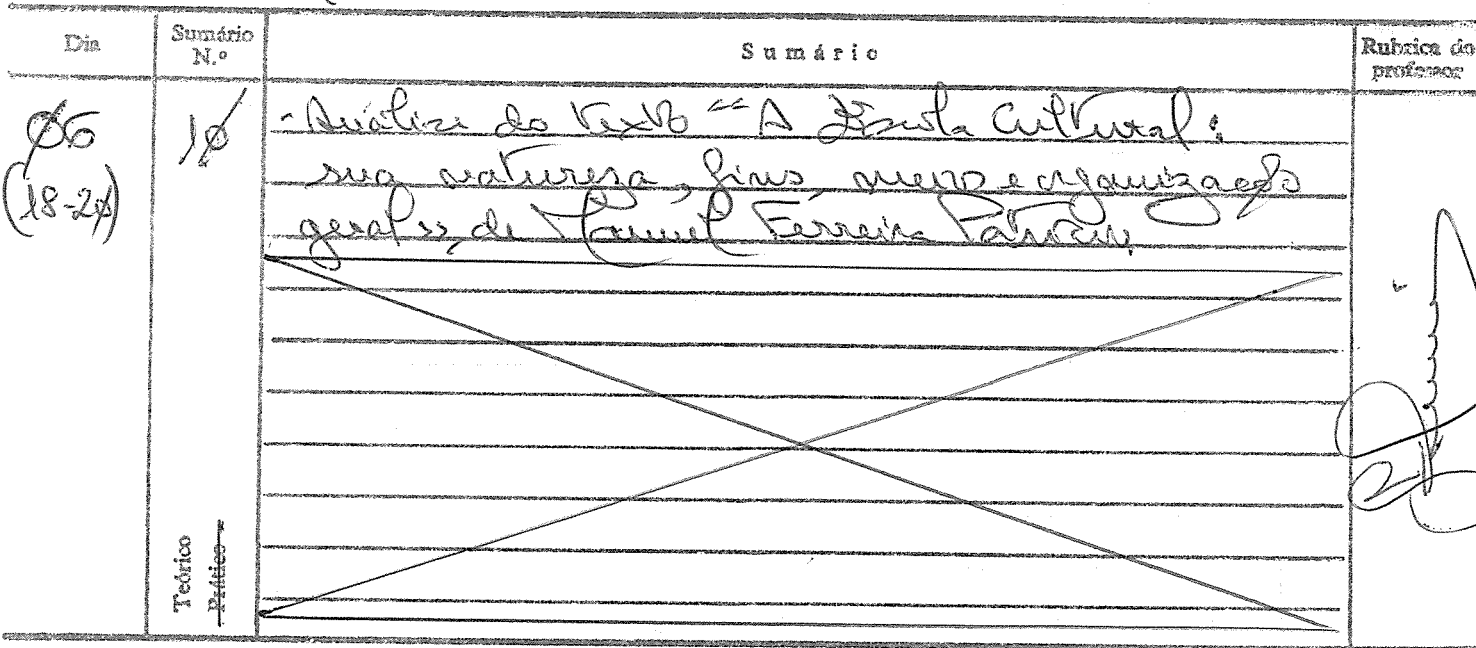 Dia
Sumário
N.º
Sumário
Rubrica do
professor
06
(18-20)
10
- Análise do texto "A Escola Cultural:
sua natureza, fins, meios e organização
geral", de Manuel Ferreira Patrício
Teórico
Prático